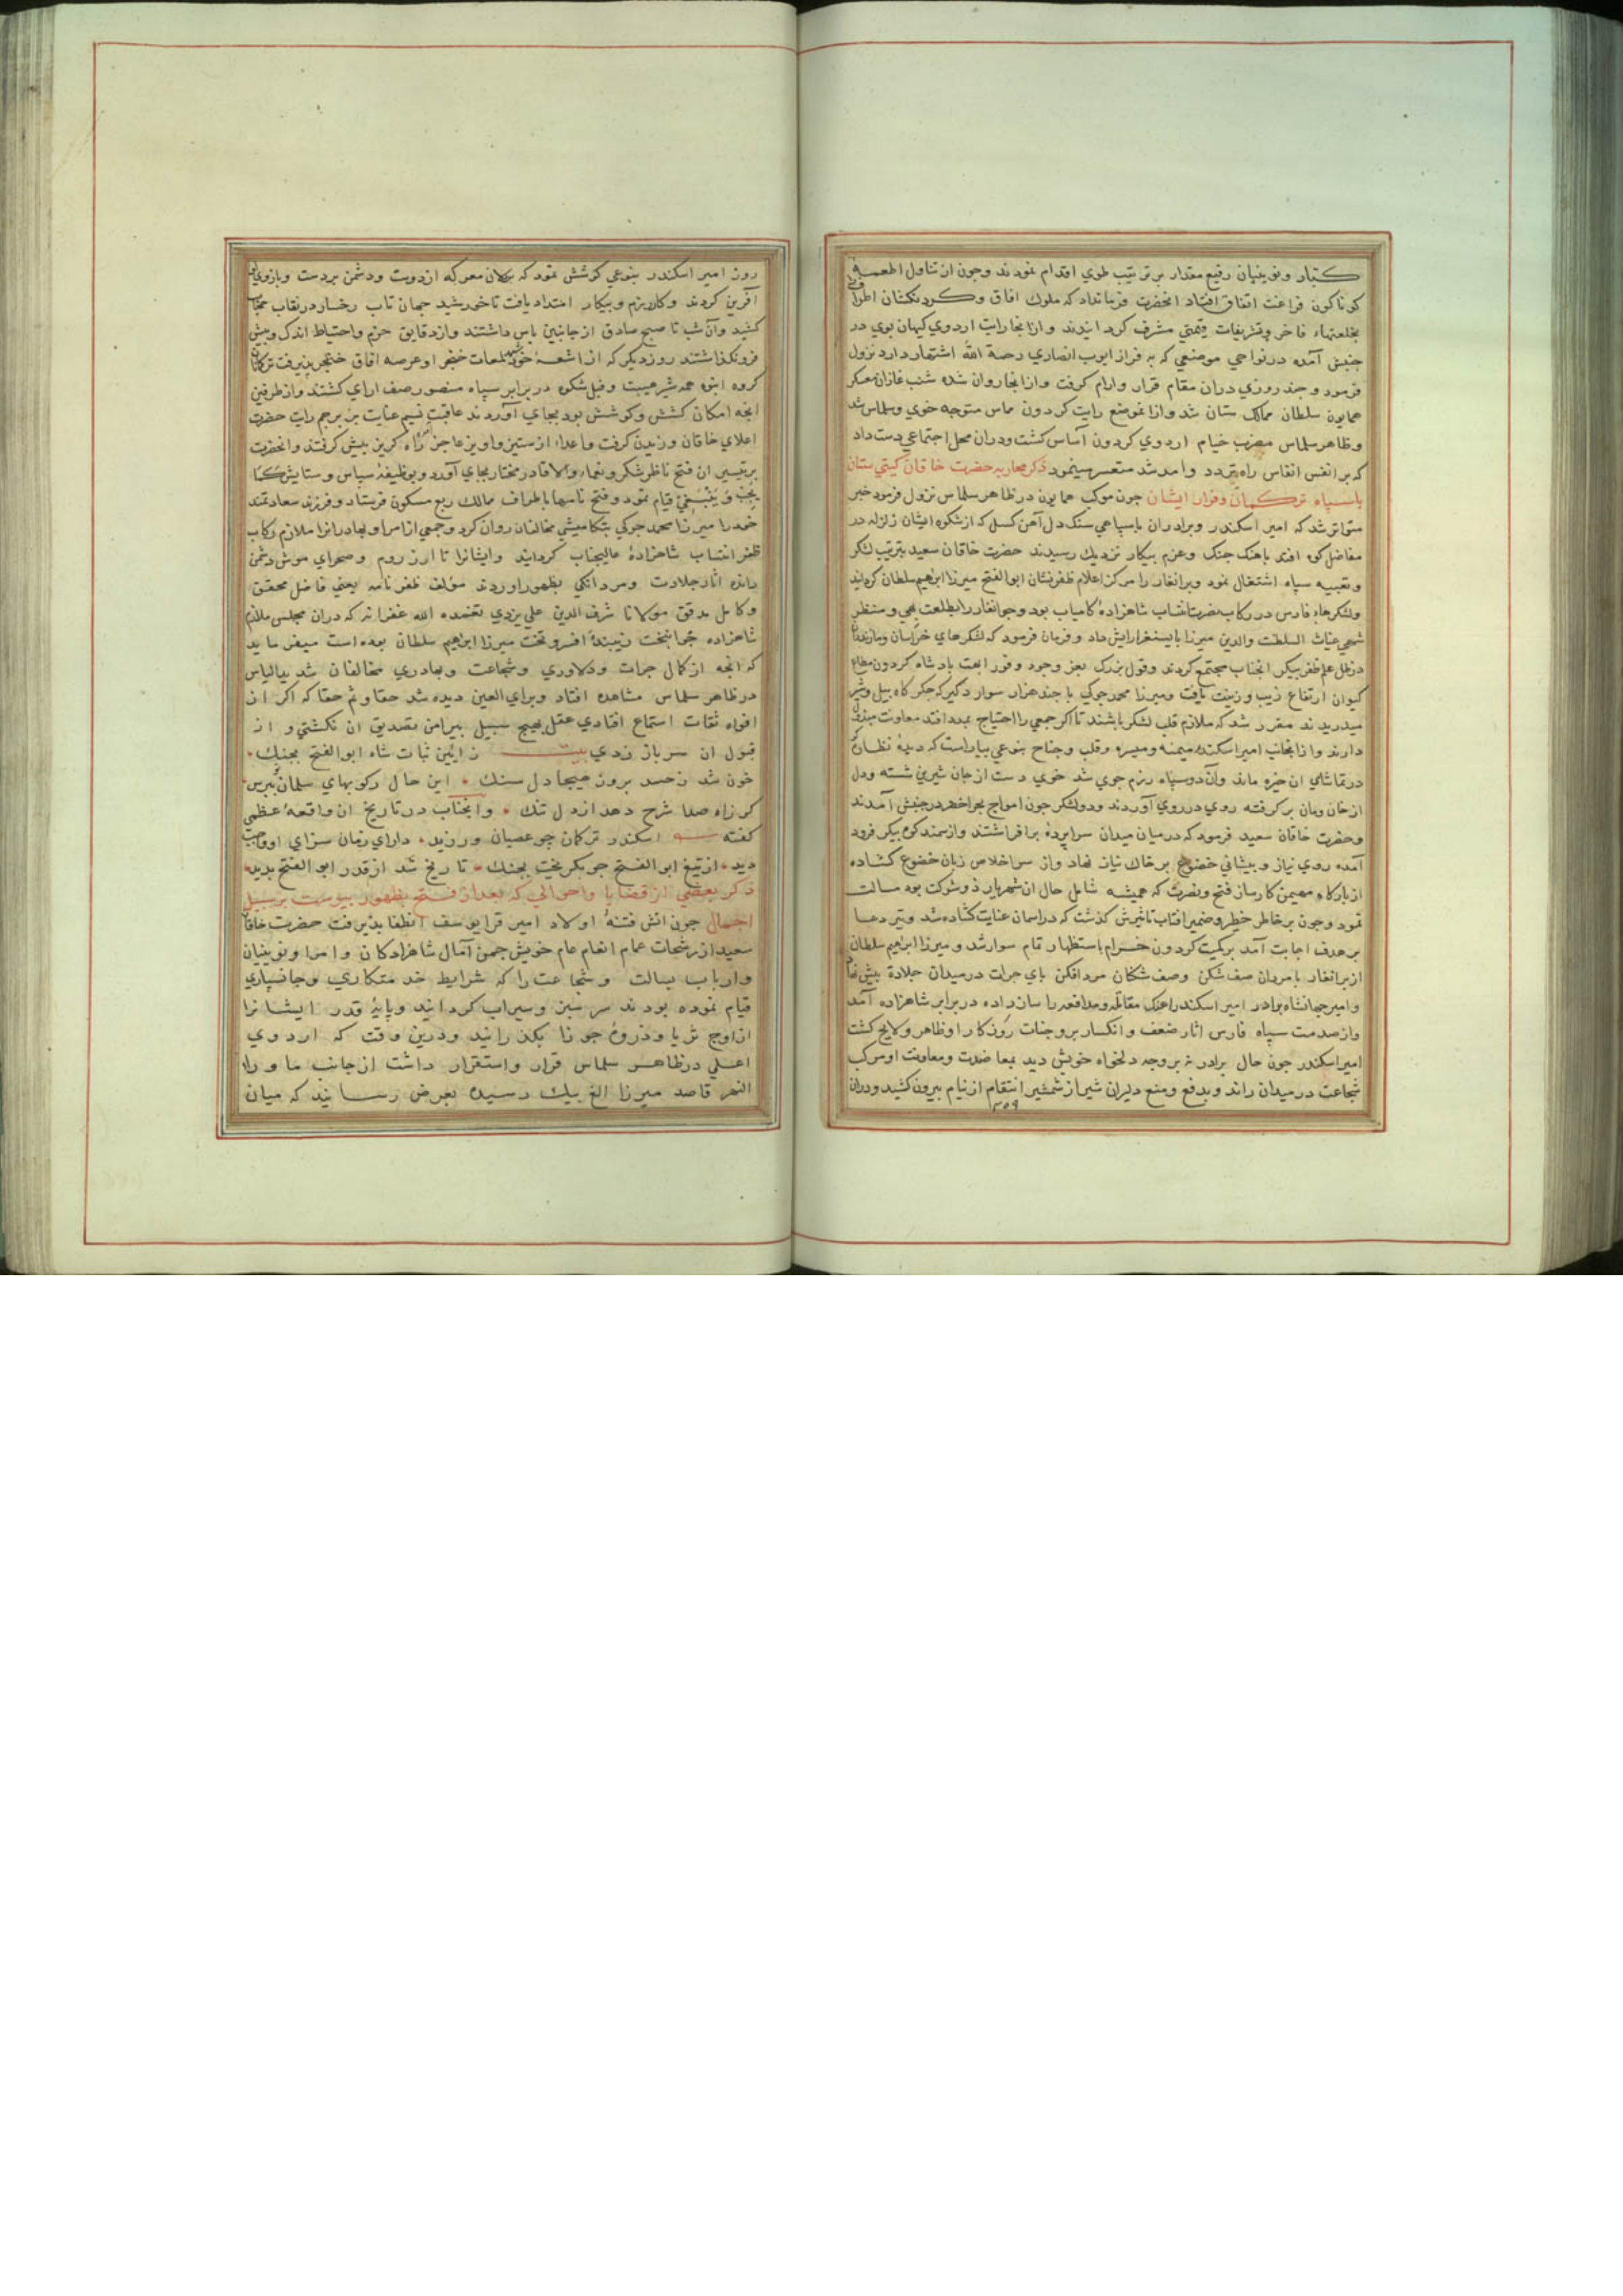 كبار ونوينيان رفيع مقدار بر ترتيب طوي اقدام نمودند وجون از تناول اطعمه
كوناكون فراغت اتفاق افتاد انحضرت فرمانداد كه ملوك افاق وكردنكشان اطراف
بخلعتهاء فاخر وتشريفات قيمتي مشرف كردانيدند وازانجا رايت اردوي كيهان بوي در
جنبش آمده درنواحي موضعي كه به قراز ايوب انصاري رحمة الله اشتهار دارد نزول
فرمود وجند روزي دران مقام قرار وارام كرفت وازانجا روان شده شنب غازان معسكر
همايون سلطان ممالك ستان شد وازانموضع رايت كردون مماس متوجه خوي وسلماس شد
وظاهر سلماس مضرب خيام اردوي كردون آساس كشت ودران محل اجتماعي دست داد
كه بر انفس انفاس راه تردد وامد شد متعسر مينمود ذكر محاربه حضرت خاقان كيتي ستان
باسپاه تركمان وفرار ايشان جون موكب همايون درظاهر سلماس نزول فرمود خبر
متواتر شد كه امير اسكندر وبرادران باسپاهي سنك دل آهن كسل كه از شكوه ايشان زلزله در
مفاصل كوه افتد باهنك جنك وعزم بيكار نزديك رسيدند حضرت خاقان سعيد بترتيب لشكر
وتعبيه سپاه اشتغال نمود وبرانغار را مركز اعلام ظفرنشان ابوالفتح ميرزا ابرهيم سلطان كردانيد
ولشكرهاء فارس در ركاب نصرت انتساب شاهزادهٔ كامياب بود وجوانغار را بطلعت بهي ومنظر
شهي غياث السلطنت والدين ميرزا بايسنغر ارايش داد وفرمان فرمود كه لشكرهاي خراسان ومازندران
درظل علم ظفر بيكر انجناب مجتمع كردند وقول بزرك بعز وجود وفور ابهت بادشاه كردون مطاع
كيوان ارتفاع زيب وزينت يافت وميرزا محمد جوكي با جند هزار سوار دكير كه جكر كاه بيل وشير
ميدريدند مقرر شد كه ملازم قلب لشكر باشند تا اكر جمعي را احتياج بمدد افتد معاونت مبذول
دارند وازانجانب امير اسكندر ميمنه وميسره وقلب وجناح بنوعي بياراست كه ديدهٔ نظاركي
درتماشاي ان خيره ماند وآن دوسپاه رزم جوي شد خوي دست از جان شيرين شسته ودل
از خان ومان بر كرفته روي در روي آوردند ودولشكر جون امواج بحر اخضر درجنبش آمدند
وحضرت خاقان سعيد فرمود كه درميان ميدان سرا پردهٔ برافراشتند واز سمند كوه بيكر فرود
آمده روي نياز وبيشاني خضوع بر خاك نياز نهاد واز سر اخلاص زبان خضوع كشاده
از باركاه مهيمن كارساز فتح ونصرت كه هميشه شامل حال ان شهريار ذو شوكت بود مسالت
نمود وجون برخاطر خطير وضمير افتاب تاثيرش كذشت كه در اسمان عنايت كشاده شد وتير دعا
بر هدف اجابت آمد بر كميت كردون خرام باستظهار تمام سوار شد وميرزا ابرهيم سلطان
از برانغار بامردان صف شكن وصف شكنان مرد افكن باي جرات درميدان جلادة بيش نهاد
وامير جهانشاه برادر امير اسكندر اهنك مقاتله ومدافعه را ساز داده در برابر شاهزاده آمد
واز صدمت سپاه فارس اثار ضعف وانكسار بر وجنات روزكار او ظاهر ولايح كشت
امير اسكندر جون حال برادر نه بر وجه دلخواه خويش ديد بمعاضدت ومعاونت او مركب
شجاعت درميدان راند وبدفع ومنع دليران شيراز شمشير انتقام از نيام بيرون كشيد ودران
۳۵۹
روز امير اسكندر بنوعي كوشش نمود كه دران معركه از دوست ودشمن بر دست وبازوي او
آفرين كردند وكارزار رزم وبيكار امتداد يافت تا خورشيد جهان تاب رخسار درنقاب حجاب
كشيد وآن شب تا صبح صادق از جانبين باس داشتند واز دقايق حزم واحتياط اندك وبيش
فرونكذاشتند روز ديكر كه از اشعهٔ خورشيد لمعات خنجر او عرصه افاق تركان
كروه انبوه همه شير هيبت وفيل شكوه در برابر سپاه منصور صف اراي كشتند واز طرفين
انجه امكان كشش وكوشش بود بجاي آوردند عاقبت نسيم عنايت بر برجم رايت حضرت
اعلاي خاقان وزيدن كرفت واعدا از ستيز واويز عاجز راه كريز بيش كرفتند وانحضرت
برتيسير ان فتح نامدار شكر ونعماء والاء قادر مختار بجاي آورد وبوظيفهٔ سپاس وستايش كما
يجب وينبغي قيام نمود وفتح نامها باطراف ممالك ربع مسكون فرستاد وفرزند سعادتمند
خود را ميرزا محمد جوكي بتكاميشي مخالفان روان كرد وجمعي از امرا وبهادرانرا ملازم ركاب
ظفر انتساب شاهزادهٔ عاليجناب كردانيد وايشانرا تا ارز روم وصحراي موش دشمن
رانده اثار جلادت ومردانكي بظهور اوردند مولف ظفرنامه يعني فاضل محقق
وكامل مدقق مولانا شرف الدين علي يزدي تغمده الله غفرانه كه دران مجلس ملازم
شاهزاده جوانبخت زيبندهٔ افسر وتخت ميرزا ابرهيم سلطان بوده است ميفرمايد
كه انجه از كمال جرات ودلاوري وشجاعت وبهادري مخالفان شديدالباس
درظاهر سلماس مشاهده افتاد وبراي العين ديده شد حقا وثم حقا كه اكر از
افواه ثقات استماع افتادي عقل بهيچ سبيل بيرامن تصديق ان نكشتي واز
قبول ان سر باز زدي بيت ز ايين ثبات شاه ابوالفتح بجنك •
خون شد زحسد برون هيجا دل سنك • اين حال زكوبهاي سلماس بپرس •
كز راه صدا شرح دهد از دل تنك • وانجناب درتاريخ ان واقعهٔ عظمي
كفته اسكندر تركمان جو عصيان ورزيد • داراي زمان سزاي او واجب
ديد • از تيغ ابوالفتح جو بكريخت بجنك • تاريخ شد از قدر ابوالفتح بديد •
ذكر بعضي از قضايا واحوالي كه بعد از فتح بظهور بيوست بر سبيل
اجمال جون اتش فتنهٔ اولاد امير قرايوسف انطفا بذيرفت حضرت خاقان
سعيد از رشحات غمام انعام عام خويش جمن آمال شاهزادكان وامرا ونوينيان
وارباب بسالت وشجاعت را كه شرايط خدمتكاري وجانسپاري
قيام نموده بودند سر سبز وسيراب كردانيد وپايهٔ قدر ايشانرا
ازاوج ثريا وذروهٔ جوزا بكذرانيد ودرين وقت كه اردوي
اعلي درظاهر سلماس قرار واستقرار داشت از جانب ماورا
النهر قاصد ميرزا الغ بيك رسيده بعرض رسانيد كه ميان